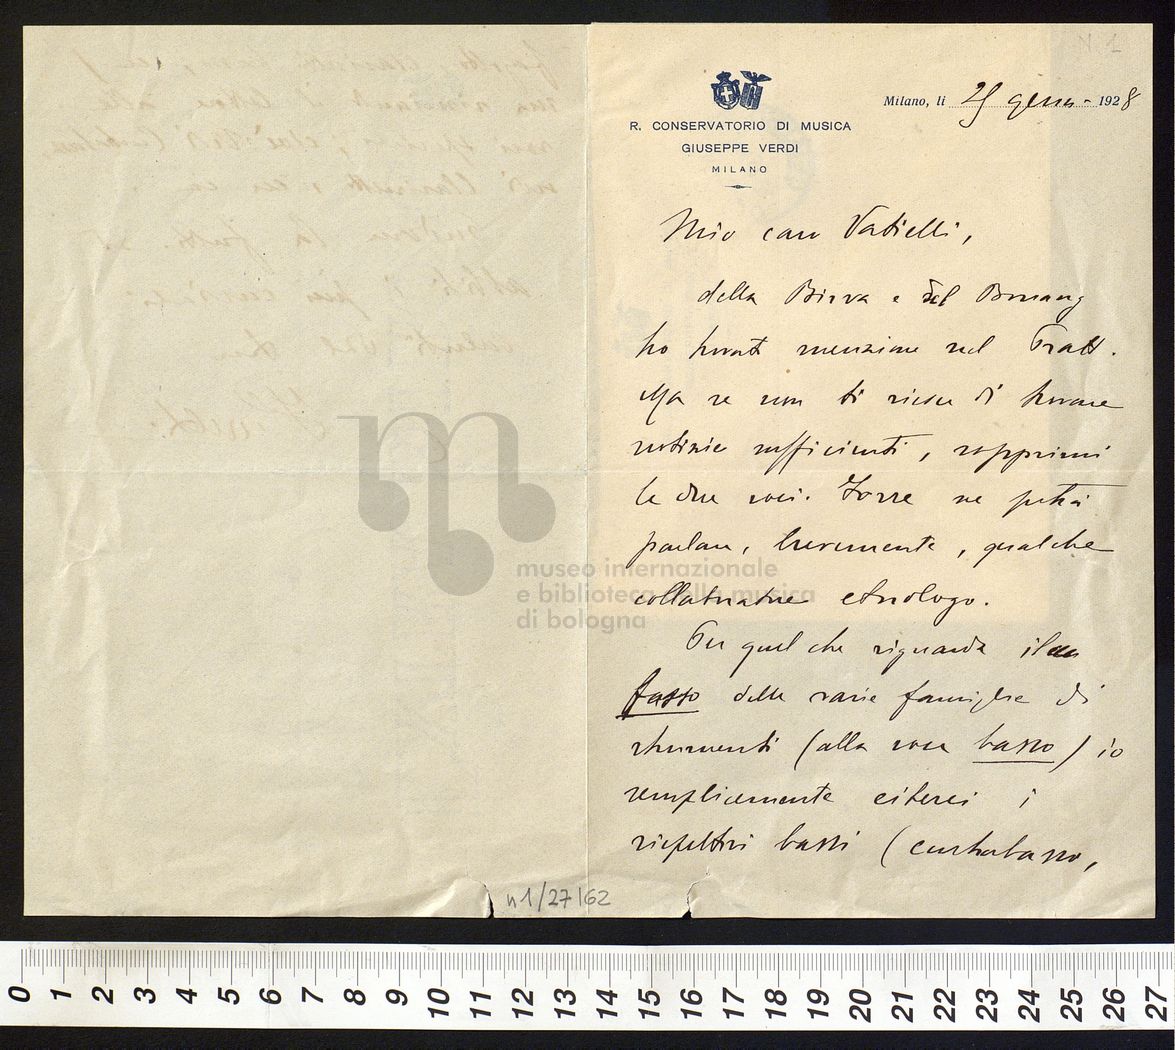 N. 1
R. CONSERVATORIO DI MUSICA
GIUSEPPE VERDI
MILANO
Milano, li 25 genn. 1928
Mio caro Vatielli,
della Birva e del
ho trovato menzione nel Tratt.
Ma se non ti riesce di trovare
notizie sufficienti, sopprimi
le due voci. Forse ne potrà
parlare, brevemente, qualche
collaboratore etnologo.
Per quel che riguarda il
basso delle varie famiglie di
strumenti (alla voce basso) io
semplicemente citerei i
rispettivi bassi (contrabasso,
n1/27/62
museo internazionale
e biblioteca della musica
di bologna
0 1 2 3 4 5 6 7 8 9 10 11 12 13 14 15 16 17 18 19 20 21 22 23 24 25 26 27